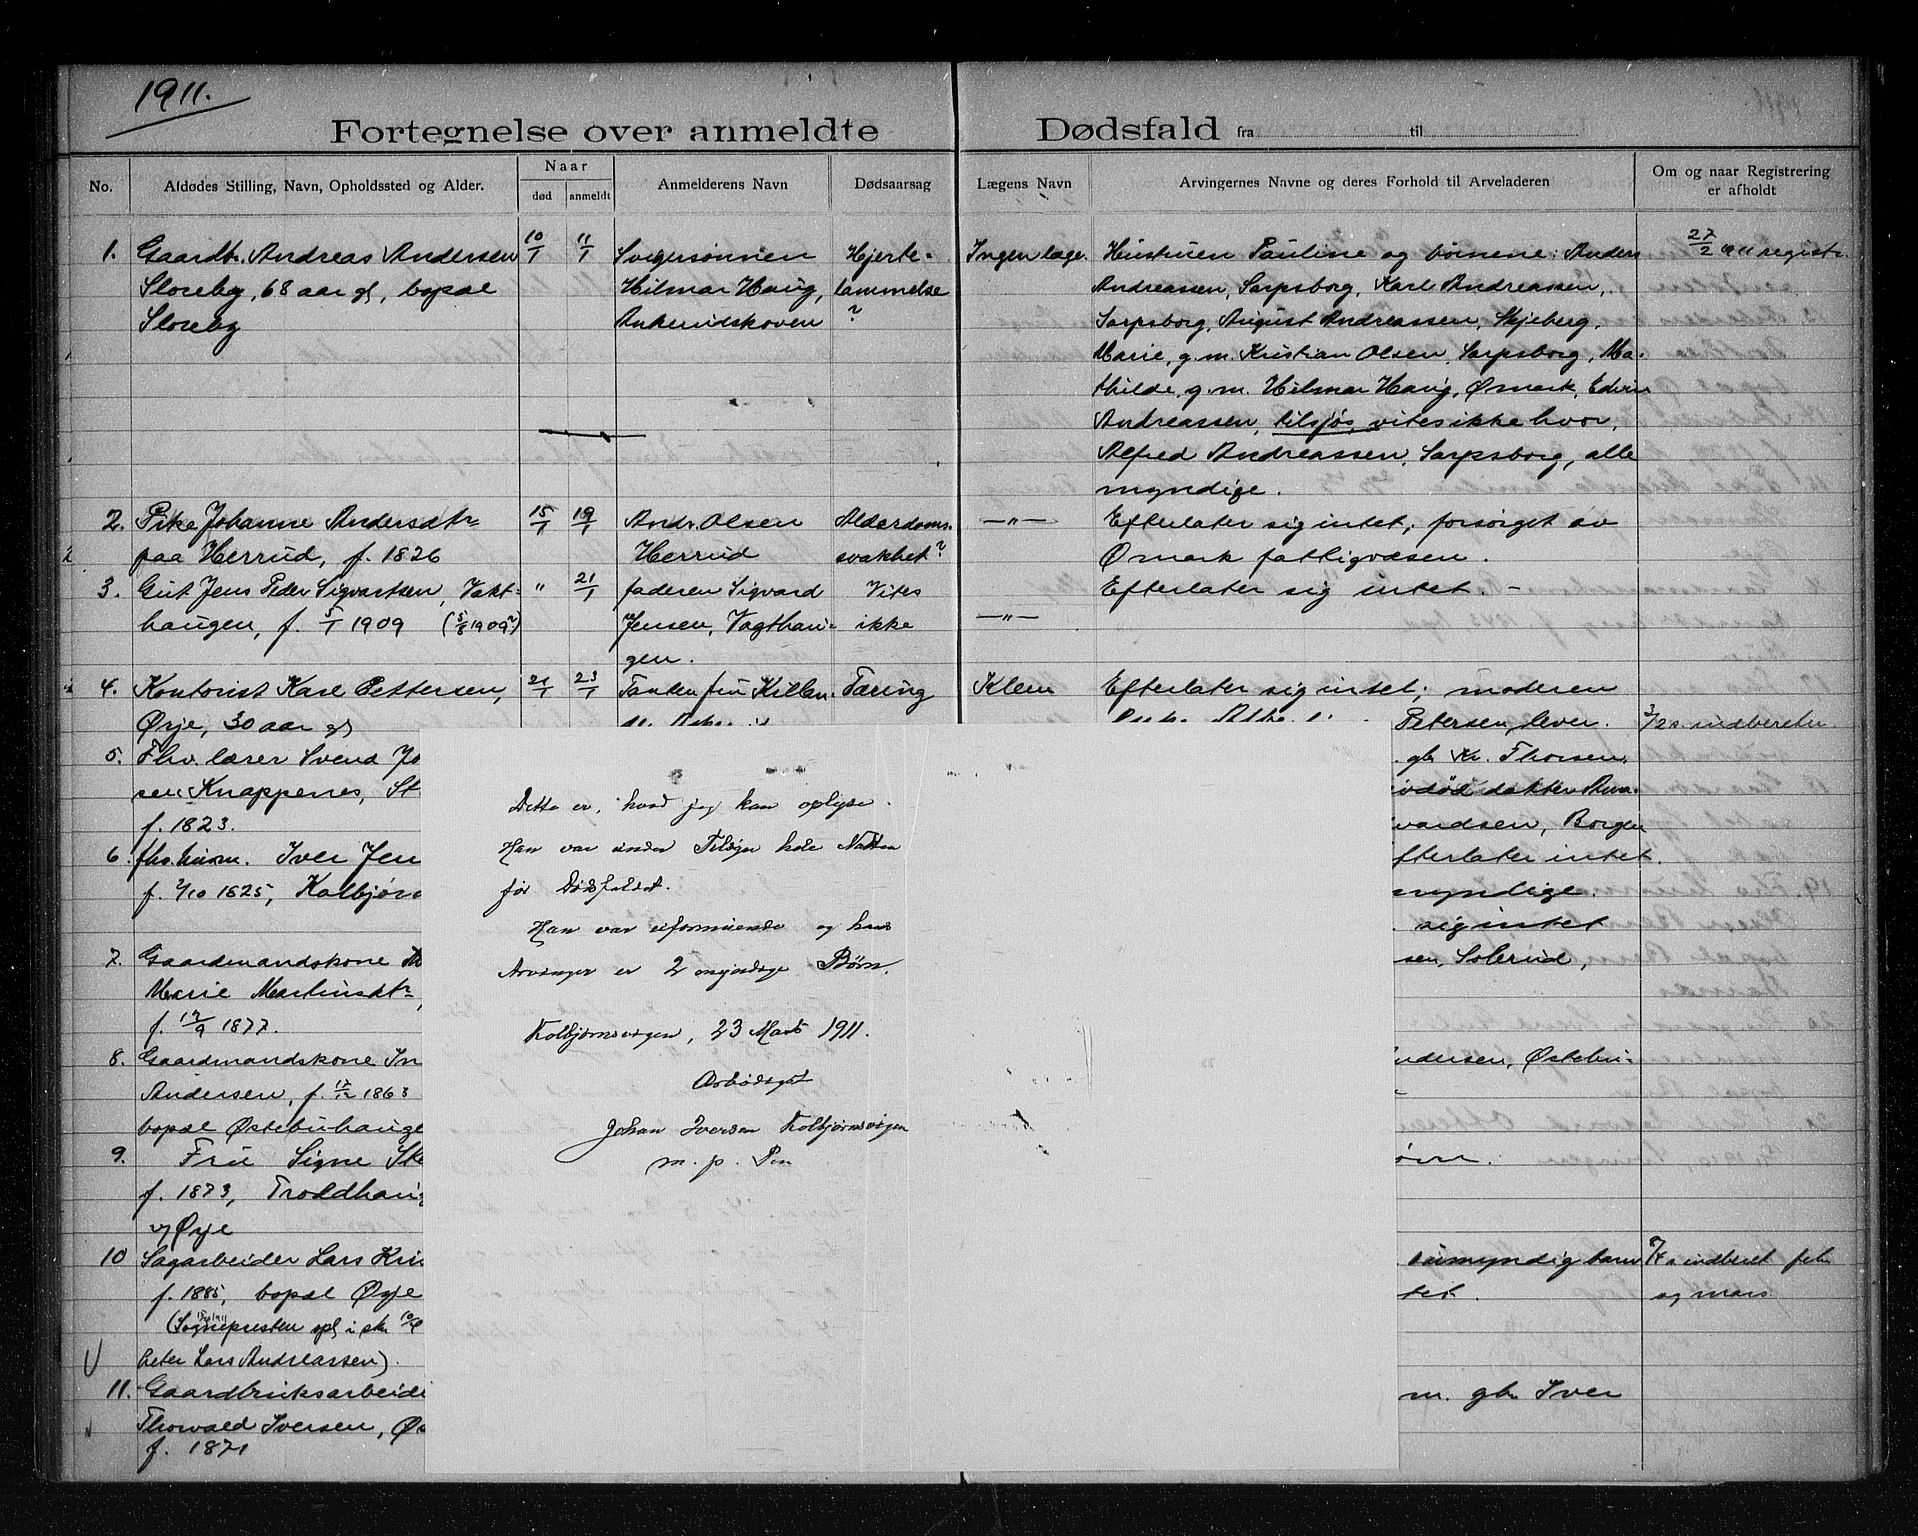 1911.
Fortegnelse over anmeldte Dødsfald fra til
No.
Afdødes Stilling, Navn, Opholdssted og Alder.
Naar
død
anmeldt
Anmelderens Navn
Dødsaarsag
Lægens Navn
Arvingernes Navne og deres Forhold til Arveladeren
Om og naar Registrering
er afholdt
1. Gaardbr. Andreas Andersen
Sloreby, 68 aar gl, bopæl
Sloreby
10/1
11/1
Svigersønnen
Hilmar Haug,
Ankerudskoven
Hjerte-
lammelse
?
Ingen læge.
Hustruen Pauline og børnene: Anders
Andreassen, Sarpsborg, Karl Andreassen,
Sarpsborg, August Andreassen, Skjeberg,
Marie, g.m. Kristian Olsen, Sarpsborg, Ma-
thilde, g.m. Hilmar Haug, Ømark, Edvin
Andreassen, tilsjøs, vites ikke hvor,
Alfred Andreassen, Sarpsborg, alle
myndige.
27/2 1911 registr.
2. Pike Johanne Andersdtr
paa Herrud, f. 1826
15/1
19/1
Andr. Olsen
Herrud
Alderdoms-
svakhet?
—"—
Efterlater sig intet; forsørget av
Ømark fattigvæsen.
3. Gut Jens Peder Sigvartsen, Vakt-
haugen, f. 5/1 1909 (5/8 1909?)
"
21/1
faderen Sigvard
Jensen, Vagthau-
gen.
Vites
ikke
—"—
Efterlater sig intet. -
4. Kontorist Karl Pettersen,
Ørje, 30 aar gl
21/1
23/1
Tanten fru Killen-
Tæring
Klem
Efterlater sig intet; moderen
Petersen, lever.
3/2 s. indberetn.
5. Fhv. lærer Svend Jo
sen Knappenes, St
f. 1823.
gbr Kr. Thorsen,
vardsen, Borger
6. fhv. husm. Iver Jen
f. 2/10 1825, Kolbjørn
fterlater intet.
myndige.
sig intet
7. Gaardmandskone
Marie Martinsdtr,
f. 12/9 1877.
sen, Solerud,
8. Gaardmandskone In
Andersen, f. 17/12 1863
bopæl Østebuhauge
ndersen, Østebu-
9. Fru Signe Ske
f. 1873, Troldhaug
v/ Ørje
10 Sagarbeider Lars Kri
f. 1885, bopæl Ørje
(Sognepresten opl i skr
heter Lars Andreassen).
umyndig barn
tet.
8/4 s indberet feb
og mars
11. Gaardbruksarbeide
Thorvald Iversen, Øs
f. 1871
m. gbr Iver
Dette er, hvad jeg kan oplyse.
Han var under Tilsyn hele Natten
før Dødsfaldet.
Han var uformuende og hans
Arvinger er 2 myndige Børn.
Kolbjørnsvigen, 23 Marts 1911.
Ærbødigst
Johan Iversen Kolbjørnsvigen
m. p. Pen